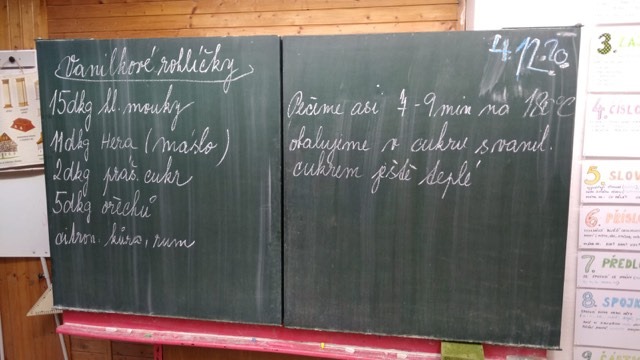 Vanilkové rohlíčky
15dkg hl. mouky
11dkg Hera (máslo)
2dkg práš. cukr
5dkg ořechů
citron. kůra, rum
4.12.20
Pečeme asi 7-9 min na 180°C
obalujeme v cukru s vanil.
cukrem ještě teplé
3.
4. ČÍSLO
5. SLOV
6. PŘÍSL
7. PŘEDLO
8. SPOJK
9. ČÁST